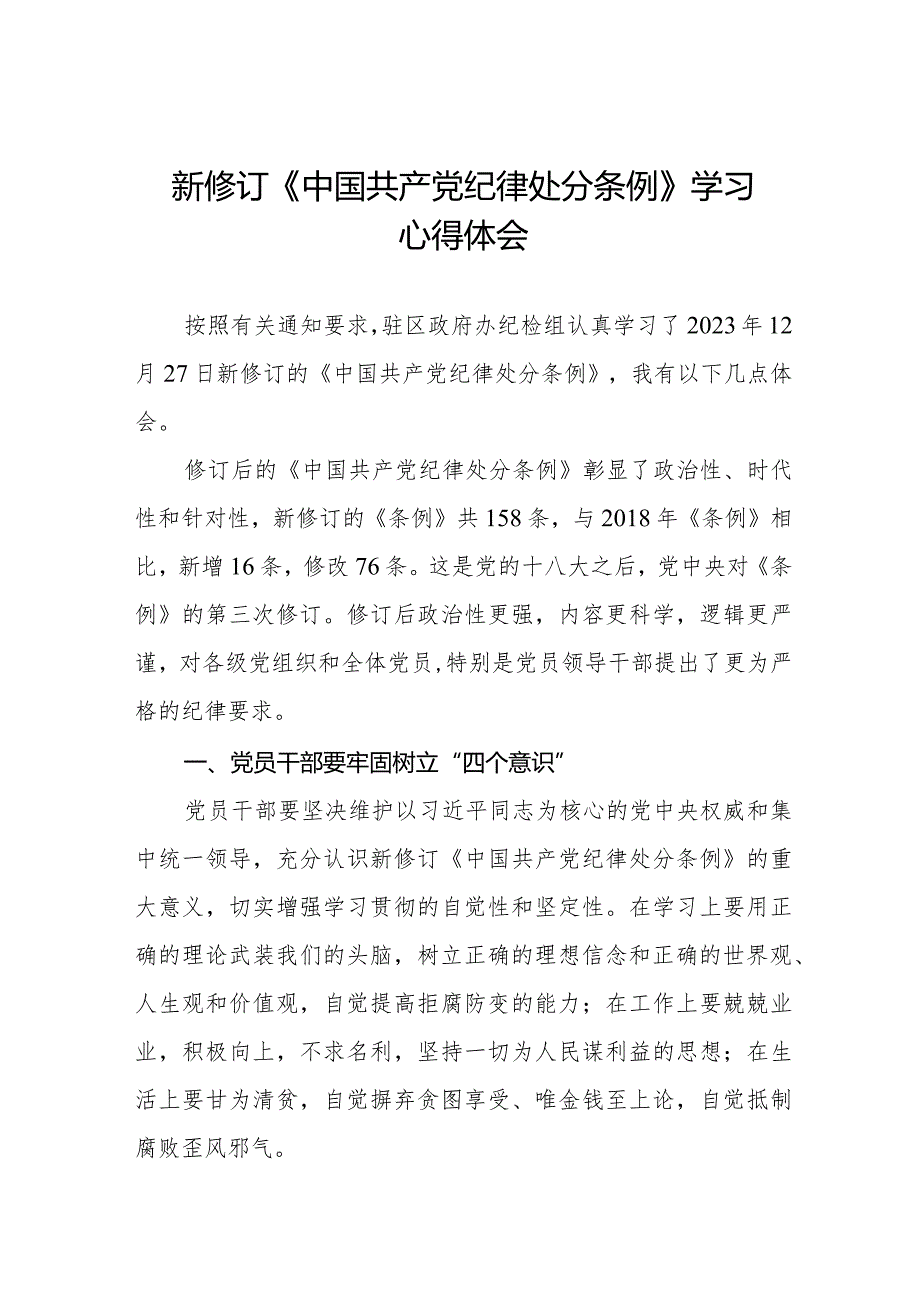 新修订《中国共产党纪律处分条例》学习
心得体会
按照有关通知要求,驻区政府办纪检组认真学习了 2023 年 12
月 27 日新修订的《中国共产党纪律处分条例》，我有以下几点体
会。
修订后的《中国共产党纪律处分条例》彰显了政治性、时代
性和针对性，新修订的《条例》共 158 条，与 2018 年《条例》相
比，新增 16 条，修改 76 条。这是党的十八大之后，党中央对《条
例》的第三次修订。修订后政治性更强，内容更科学，逻辑更严
谨，对各级党组织和全体党员,特别是党员领导干部提出了更为严
格的纪律要求。
一、党员干部要牢固树立“四个意识”
党员干部要坚决维护以习近平同志为核心的党中央权威和集
中统一领导，充分认识新修订《中国共产党纪律处分条例》的重
大意义，切实增强学习贯彻的自觉性和坚定性。在学习上要用正
确的理论武装我们的头脑，树立正确的理想信念和正确的世界观、
人生观和价值观，自觉提高拒腐防变的能力；在工作上要兢兢业
业，积极向上，不求名利，坚持一切为人民谋利益的思想；在生
活上要甘为清贫，自觉摒弃贪图享受、唯金钱至上论，自觉抵制
腐败歪风邪气。